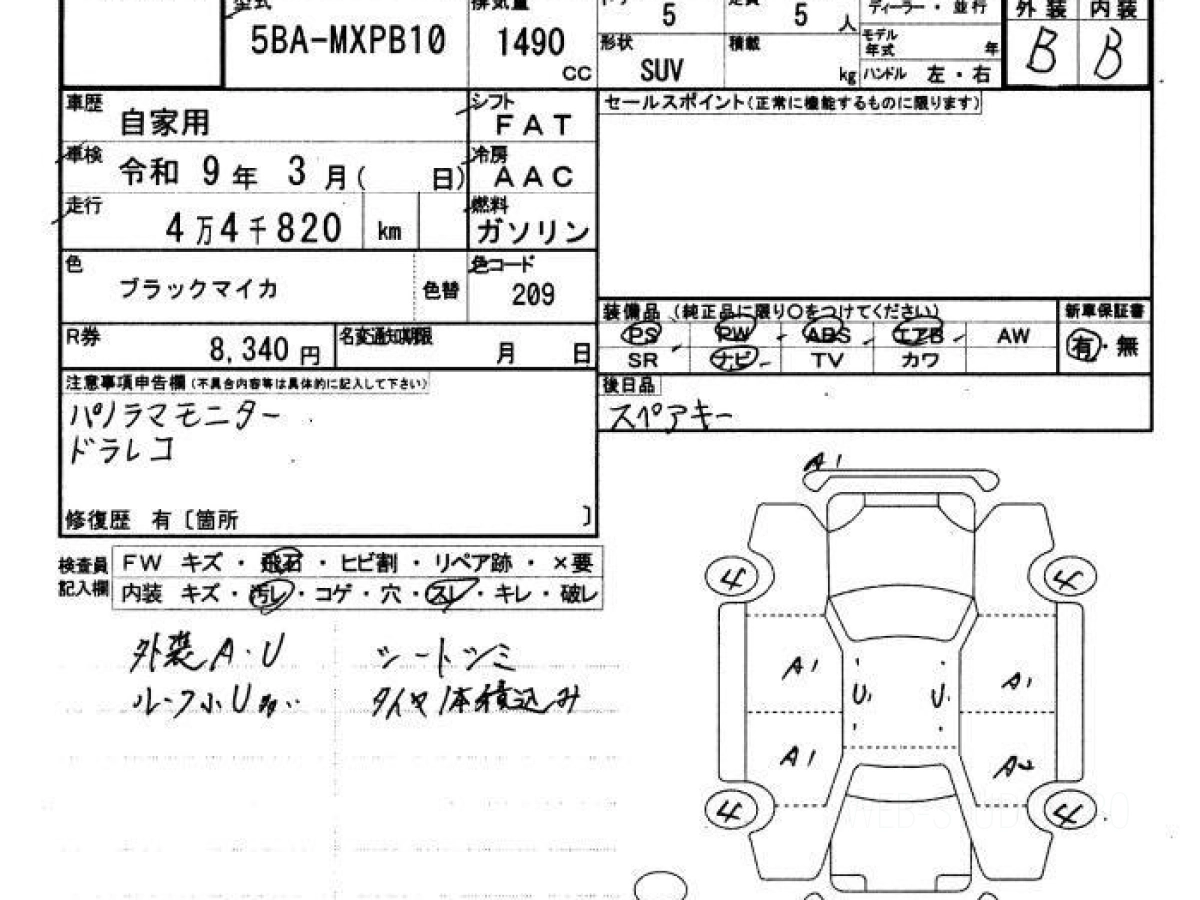 型式 排気量 ドア 5 定員 5 人 ディーラー・並行 外装 内装
5BA-MXPB10 1490 CC 形状 SUV 積載 kg モデル年式 年 B B
ハンドル 左・右
車歴 自家用 シフト FAT セールスポイント(正常に機能するものに限ります)
車検 令和 9年 3月( 日) 冷房 AAC
走行 4万4千820 km 燃料 ガソリン
色 ブラックマイカ 色替 色コード 209
装備品(純正品に限り○をつけてください) 新車保証書
PS PW ABS エアB AW 有・無
SR ナビ TV カワ
R券 8,340円 名変通知期限 月 日
注意事項申告欄(不具合内容等は具体的に記入して下さい) 後日品
パノラマモニター スペアキー
ドラレコ
修復歴 有〔箇所 〕
検査員記入欄 FW キズ・飛石・ヒビ割・リペア跡・×要
内装 キズ・汚レ・コゲ・穴・スレ・キレ・破レ
外装A・U シートシミ
ルーフ小U多い タイヤ1本積込み
A1
4 4
A1 U1 U1 A1
A1 A2
4 4